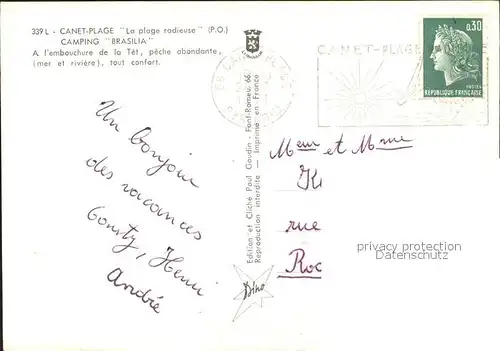 339 L - CANET-PLAGE "La plage radieuse" (P.O.)
CAMPING "BRASILIA"
A l'embouchure de la Têt, pêche abondante,
(mer et rivière), tout confort.
Un bonjour
des vacances
Henri
André
Edition et Cliché Paul Gaudin - Font-Romeu 66
Reproduction interdite — Imprimé en France
Dino
CANET-PLAGE
0,30
REPUBLIQUE FRANÇAISE
POSTES
Meur et Mme
K
rue
Roc
privacy protection
Datenschutz